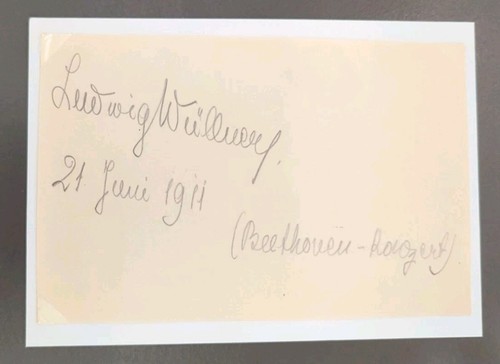 Ludwig Wüllner.
21 Juni 1911
(Beethoven-Konzert)